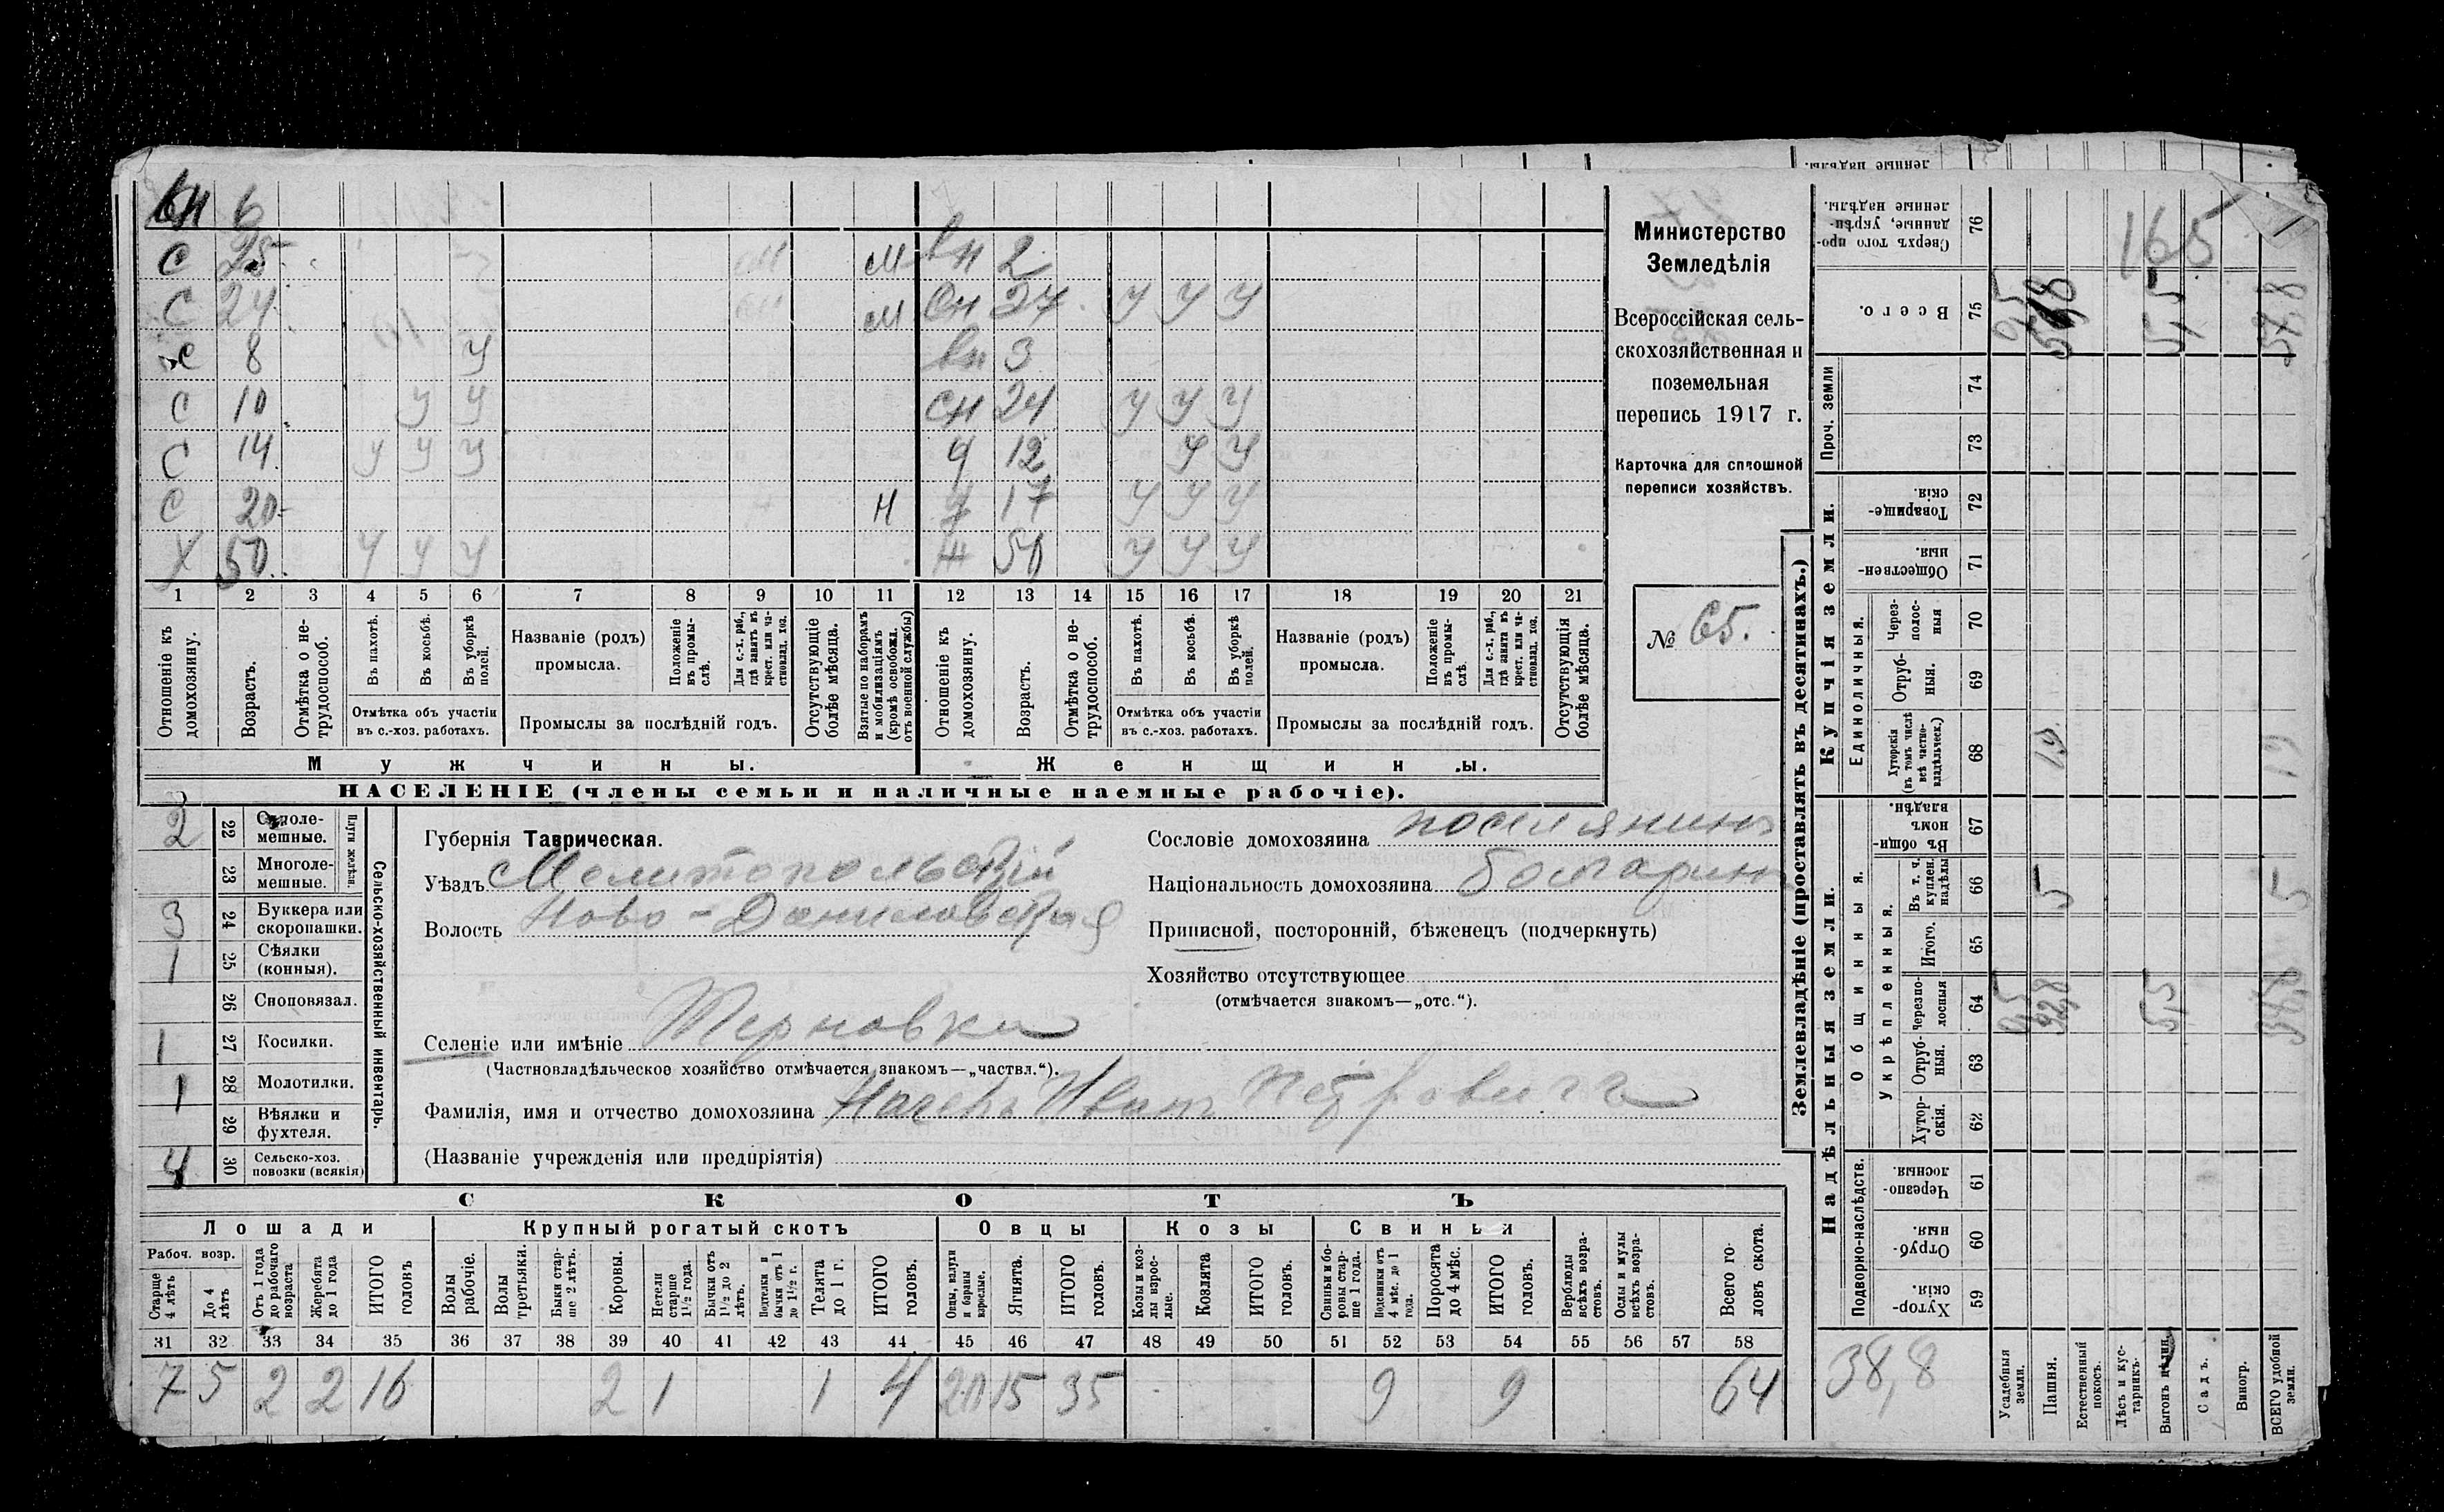 вн 6
С 25 М вн 2
С 24 М Сн 24 У У У
С 8 У вн 3
С 10 У У Сн 24 У У У
С 14 У У У 12 У У
С 20 Н 17 У У У
Х 50 У У У Ж 50 У У У
1 2 3 4 5 6 7 8 9 10 11 12 13 14 15 16 17 18 19 20 21
Отношеніе къ домохозяину.
Возрастъ.
Отмѣтка о не-трудоспособ.
Въ пахотѣ.
Въ косьбѣ.
Въ уборкѣ полей.
Отмѣтка объ участіи
въ с.-хоз. работахъ.
Названіе (родъ)
промысла.
Положеніе въ промы-слѣ.
Для с.-х. раб., гдѣ занятъ въ крест. или ча-стновлад. хоз.
Промыслы за послѣдній годъ.
Отсутствующіе болѣе мѣсяца.
Взятые по наборамъ и мобилизаціямъ (кромѣ освобожд. отъ военной службы)
Отношеніе къ домохозяину.
Возрастъ.
Отмѣтка о не-трудоспособ.
Въ пахотѣ.
Въ косьбѣ.
Въ уборкѣ полей.
Отмѣтка объ участіи
въ с.-хоз. работахъ.
Названіе (родъ)
промысла.
Положеніе въ промы-слѣ.
Для с.-х. раб., гдѣ занята въ крест. или ча-стновлад. хоз.
Промыслы за послѣдній годъ.
Отсутствующія болѣе мѣсяца.
Мужчины. Женщины.
НАСЕЛЕНІЕ (члены семьи и наличные наемные рабочіе).
Министерство
Земледѣлія
Всероссійская сель-
скохозяйственная и
поземельная
перепись 1917 г.
Карточка для сплошной
переписи хозяйствъ.
№ 65.
2 22 Одноле-
мешные.
23 Многоле-
мешные.
Плуги желѣзн.
3 24 Буккера или
скоропашки.
1 25 Сѣялки
(конныя).
26 Сноповязал.
1 27 Косилки.
1 28 Молотилки.
29 Вѣялки и
фухтеля.
4 30 Сельско-хоз.
повозки (всякія)
Сельско-хозяйственный инвентарь.
Губернія Таврическая.
Уѣздъ Мелитопольскій
Волость Ново-Даниловская
Сословіе домохозяина поселянинъ
Національность домохозяина болгаринъ
Приписной, посторонній, бѣженецъ (подчеркнуть)
Хозяйство отсутствующее
(отмѣчается знакомъ—„отс.“).
Селеніе или имѣніе Терновка
(Частновладѣльческое хозяйство отмѣчается знакомъ—„частвл.“).
Фамилія, имя и отчество домохозяина Иванъ Петровичъ
(Названіе учрежденія или предпріятія)
СКОТЪ
Лошади Крупный рогатый скотъ Овцы Козы Свиньи
Рабоч. возр.
Старше 4 лѣтъ
До 4 лѣтъ
Отъ 1 года до рабочаго возраста
Жеребята до 1 года
ИТОГО головъ
Волы рабочіе.
Волы третьяки.
Быки стар-ше 2 лѣтъ.
Коровы.
Нетели старше 1½ года.
Бычки отъ 1½ до 2 лѣтъ.
Подтелки и бычки отъ 1 до 1½ г.
Телята до 1 г.
ИТОГО головъ.
Овцы, валухи и бараны взрослые.
Ягнята.
ИТОГО головъ.
Козы и коз-лы взрос-лые.
Козлята
ИТОГО головъ.
Свиньи и бо-ровы стар-ше 1 года.
Подсвинки отъ 4 мѣс. до 1 года.
Поросята до 4 мѣс.
ИТОГО головъ.
Верблюды всѣхъ возра-стовъ.
Ослы и мулы всѣхъ возра-стовъ.
Всего го-ловъ скота.
31 32 33 34 35 36 37 38 39 40 41 42 43 44 45 46 47 48 49 50 51 52 53 54 55 56 57 58
7 5 2 2 16 2 1 1 4 20 15 35 9 9 64
Землевладѣніе (проставлять въ десятинахъ.)
ленные надѣлы.
Сверхъ того про-данные, укрѣп-ленные надѣлы. 76
165
Всего. 75 0,5 5,5 57,8
Купчія земли.
Проч. земли 74
73
Товарище-скія. 72
Обществен-ныя. 71
Единоличныя.
Через-полос-ныя 70
Отруб-ныя. 69
Хуторскія (въ томъ числѣ всѣ частно-владѣльческ.) 68 19 19
Надѣльныя земли.
Общинныя.
Въ общи-номъ владѣн. 67
Укрѣпленныя.
Въ т. ч. куплен. надѣлы 66 5 5
Итого. 65
Черезпо-лосныя 64 0,5 32,8 5,5 38,8
Отруб-ныя. 63
Хутор-скія. 62
Подворно-наслѣдств.
Черезпо-лосныя. 61
Отруб-ныя. 60
Хутор-скія. 59
38,8
Усадебныя земли.
Пашня.
Естественный покосъ.
Лѣсъ и кус-тарникъ.
Выгонъ цѣлин.
Садъ.
Виногр.
ВСЕГО удобной земли.